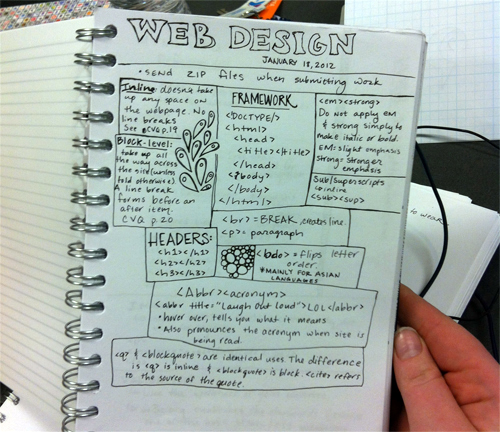 WEB DESIGN
JANUARY 18, 2012
• SEND ZIP files when submitting work
Inline: doesn't take
up any space on
the webpage. No
line breaks
See CVQ p.19
Block-level:
take up all
the way across
the site (unless
told otherwise)
A line break
forms before an
after item.
CVQ p.20
FRAMEWORK
<DOCTYPE/>
<html>
<head>
<title></title>
</head>
<body>
</body>
</html>
<em><strong>
Do not apply em
& strong simply to
make italic or bold.
EM: slight emphasis
Strong: Stronger
emphasis
Sub/superscripts
inline
<sub><sup>
<br> = BREAK, creates line.
<p> = paragraph
HEADERS:
<h1></h1>
<h2></h2>
<h3></h3>
<bdo> = flips letter
order.
*MAINLY FOR ASIAN
LANGUAGES
<Abbr><acronym>
<abbr title="Laugh out loud">LOL</abbr>
• hover over, tells you what it means
• Also pronounces the acronym when site is
being read.
<q> & <blockquote> are identical uses The difference
is <q> is inline & <blockquote> is block. <cite> refers
to the source of the quote.
to wear